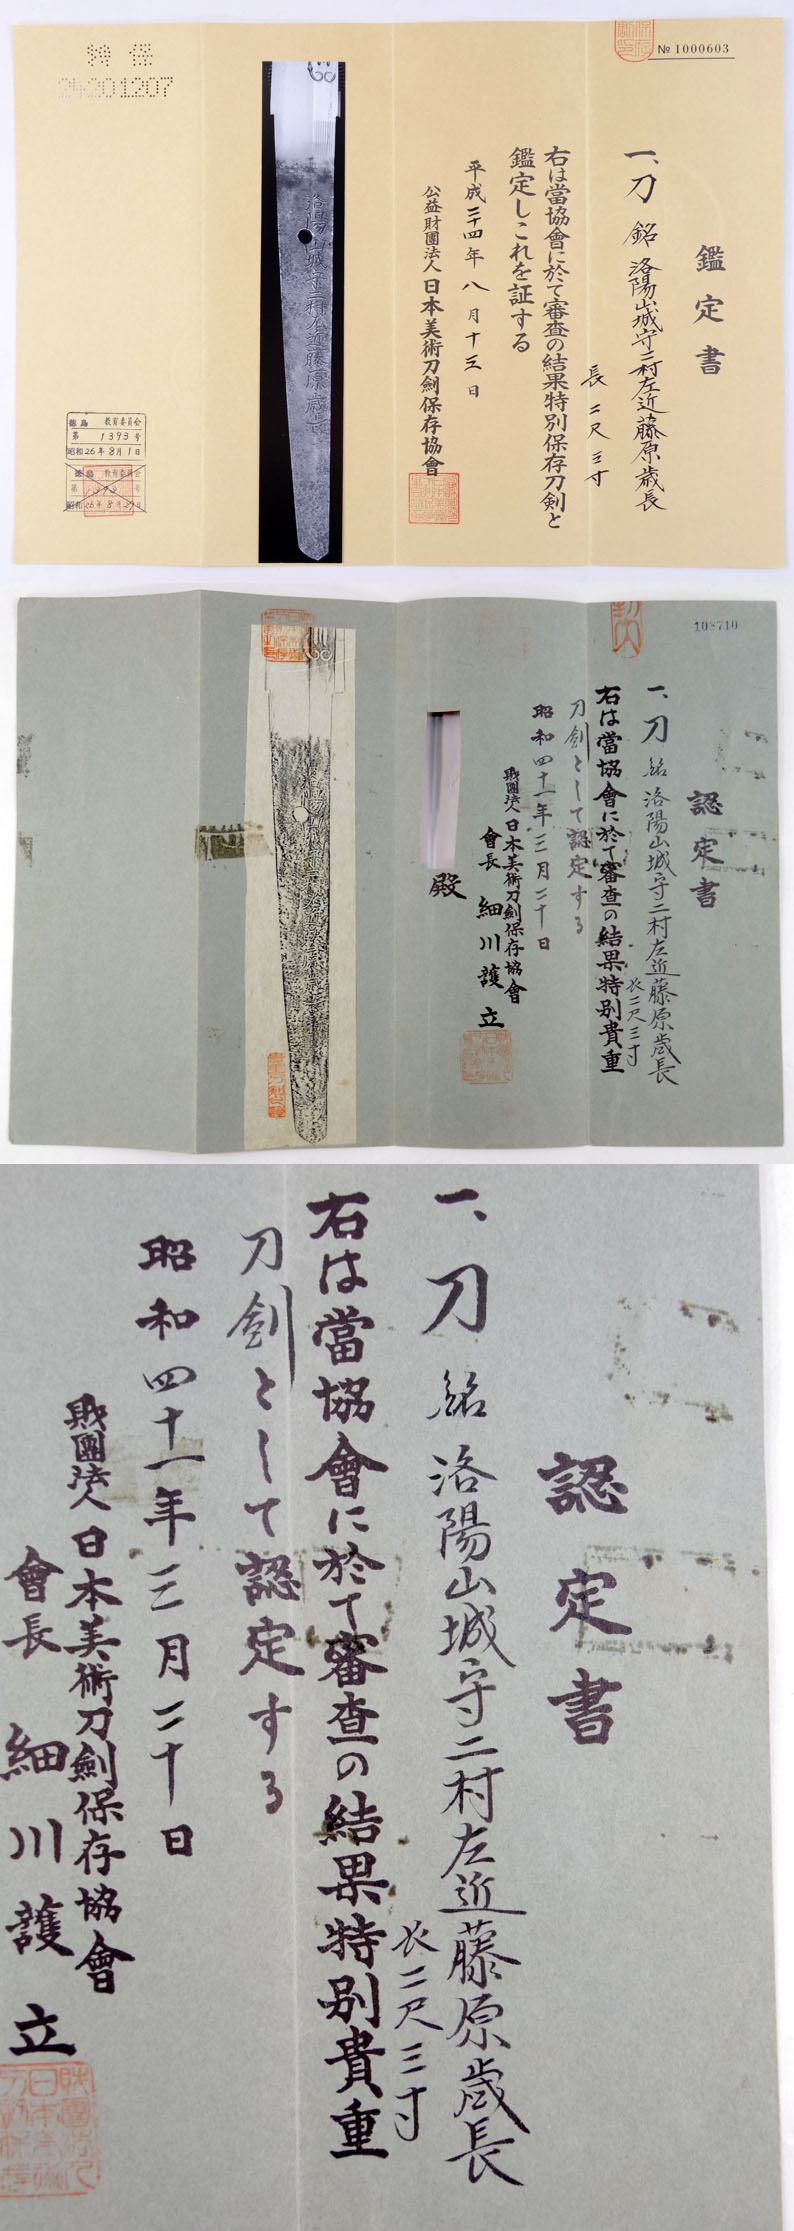 № 1000603
鑑定書
一、刀 銘 洛陽山城守二村左近藤原歳長
長二尺三寸
右は當協會に於て審査の結果特別保存刀剣と
鑑定しこれを証する
平成二十四年八月十三日
公益財團法人日本美術刀劍保存協會
特保
24201207
洛陽山城守二村左近藤原歳長
徳島 教育委員会
第 1393 号
昭和26年8月1日
徳島 教育委員会
第 号
昭和26年8月29日
108710
認定書
一、刀 銘 洛陽山城守二村左近藤原歳長
長二尺三寸
右は當協會に於て審査の結果特別貴重
刀劍として認定する
昭和四十一年三月二十日
財團法人日本美術刀劍保存協會
會長 細川護立
殿
認定書
一、刀 銘 洛陽山城守二村左近藤原歳長
長二尺三寸
右は當協會に於て審査の結果特別貴重
刀劍として認定する
昭和四十一年三月二十日
財團法人日本美術刀劍保存協會
會長 細川護立